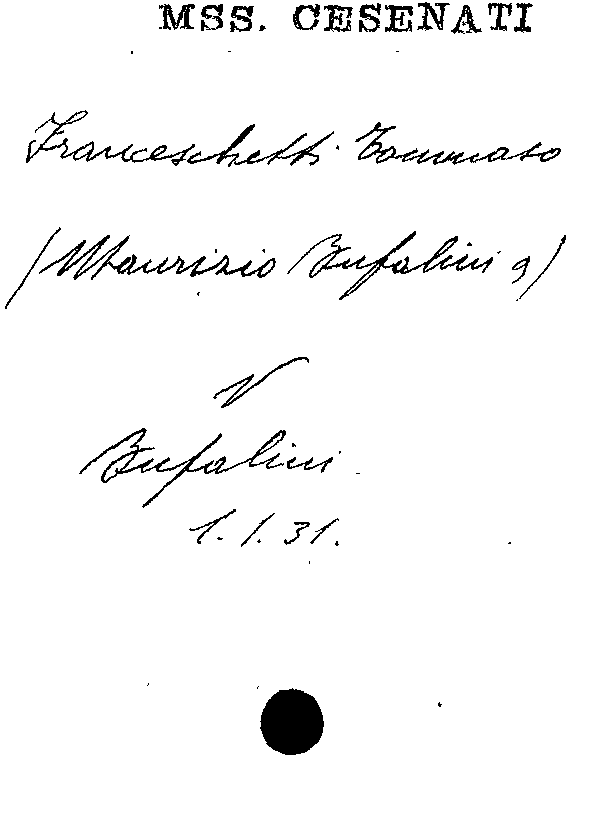 MSS. CESENATI
Franceschetti Tommaso
(Maurizio Bufalini a)
V
Bufalini
1.1.31.